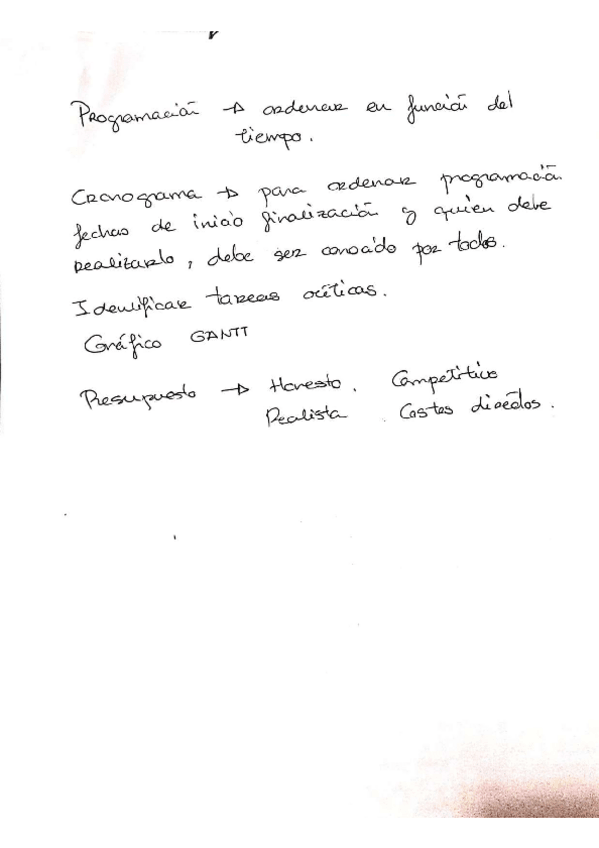 Programación → ordenar en función del
tiempo.
Cronograma → para ordenar programación.
fechas de inicio finalización y quien debe
realizarlo, debe ser conocido por todos.
Identificar tareas críticas.
Gráfico GANTT
Presupuesto → Honesto. Competitivo
Realista . Costes directos.